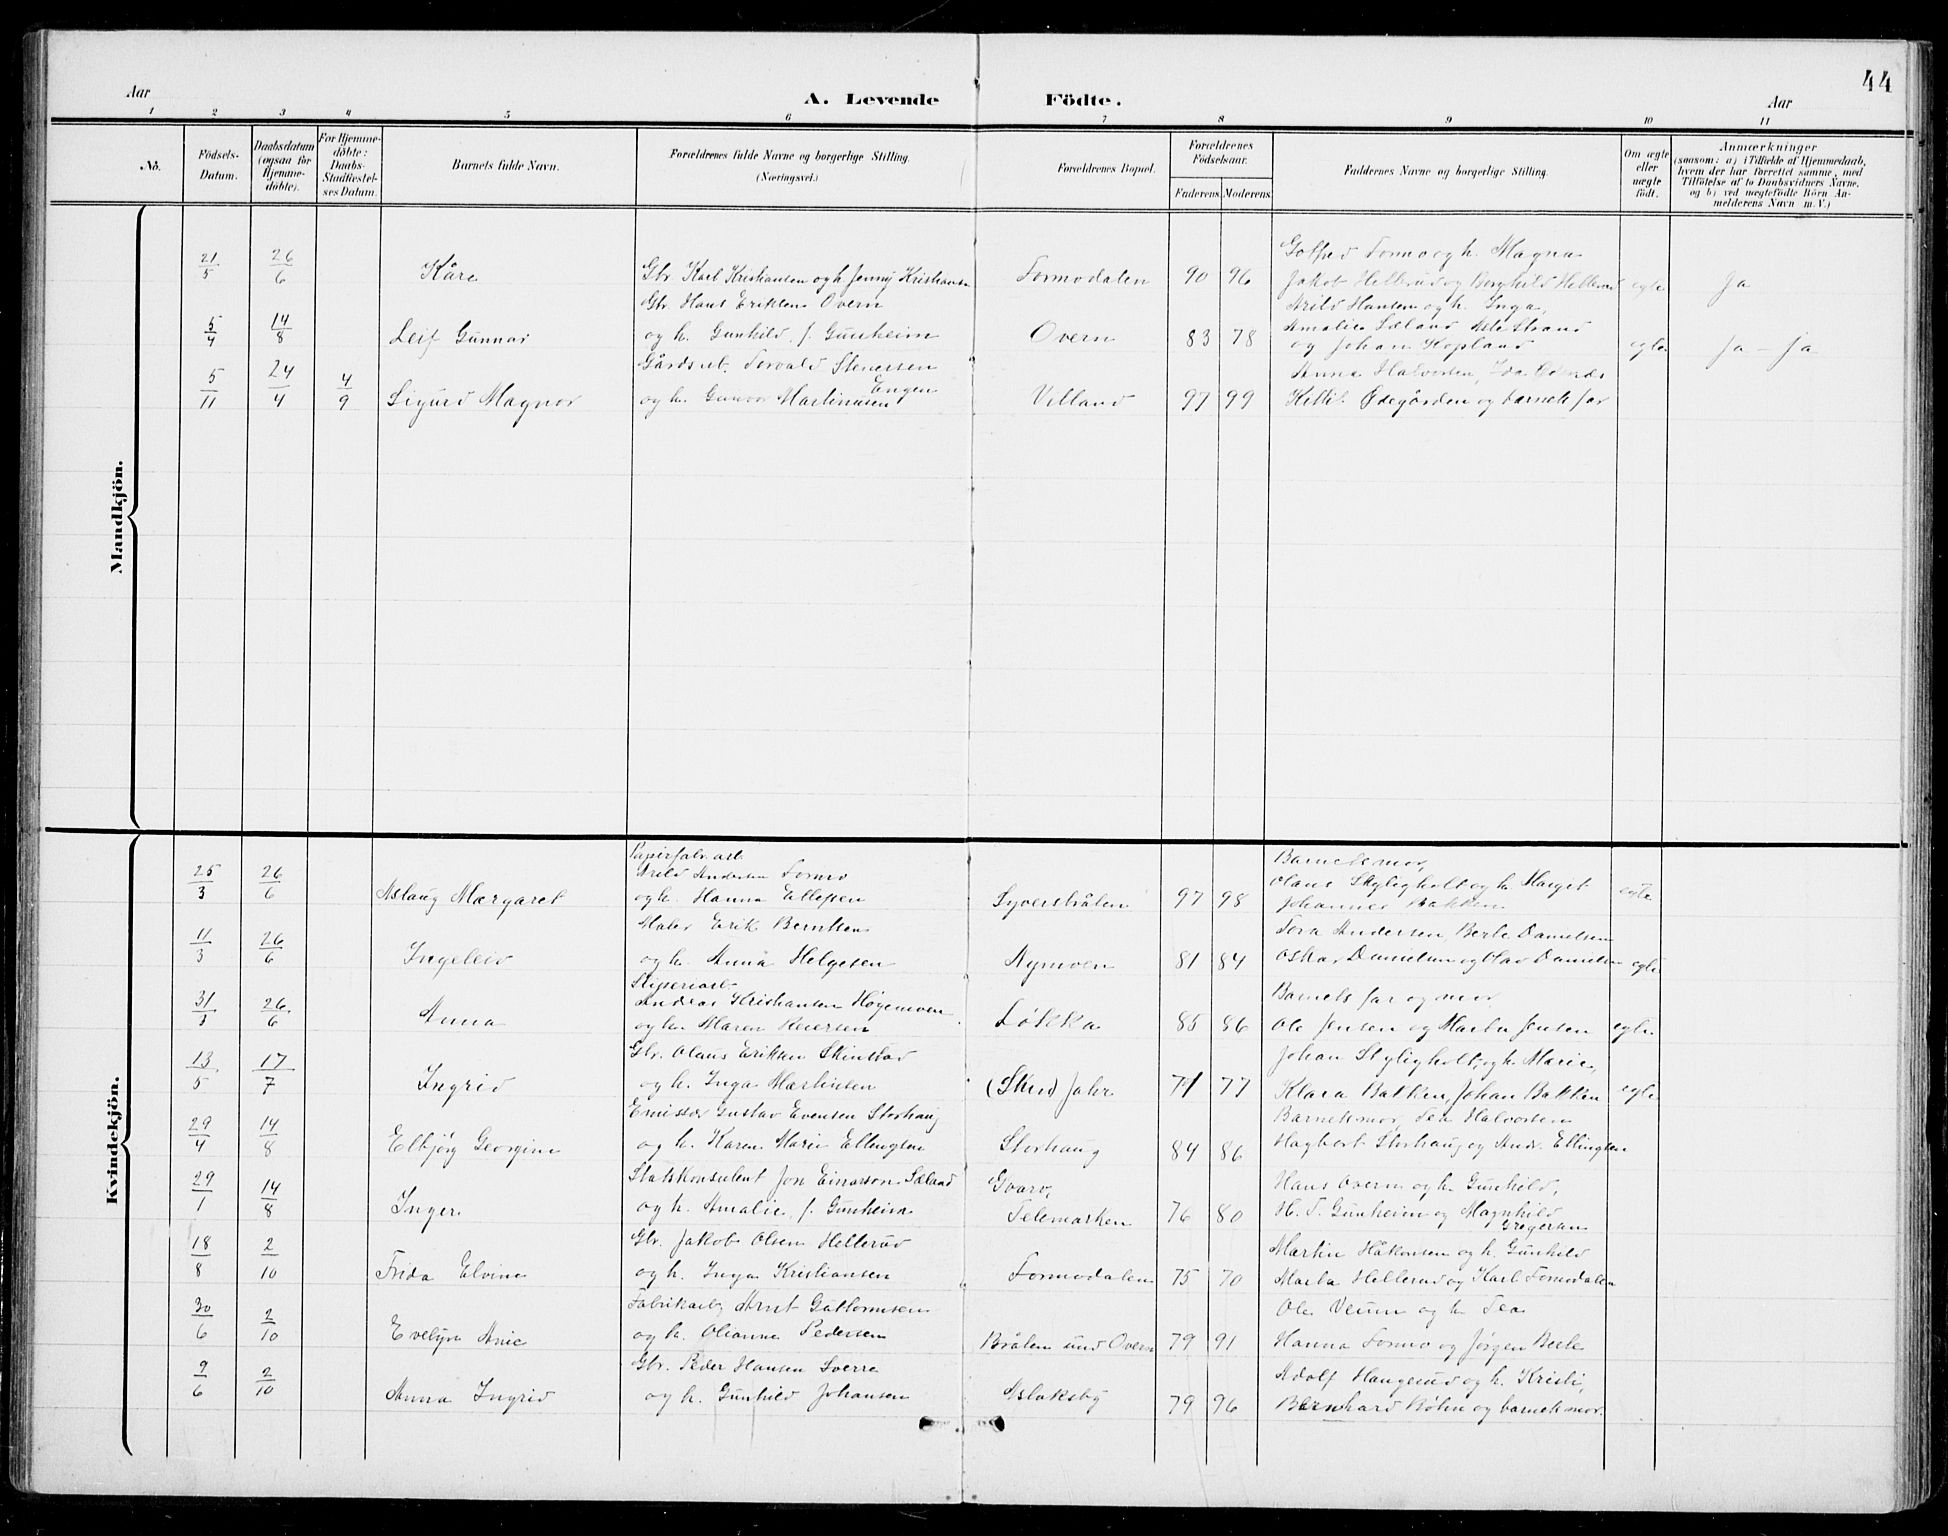 44
Aar A. Levende Födte. Aar
1 2 3 4 5 6 7 8 9 10 11
No. Födsels-Datum. Daabsdatum (ogsaa for Hjemme-döbte). For Hjemme-döbte: Daabs-Stadfæstel-ses Datum. Barnets fulde Navn. Forældrenes fulde Navne og borgerlige Stilling. (Næringsvei.) Forældrenes Bopæl. Forældrenes Födselsaar. Faderens Moderens Faddernes Navne og borgerlige Stilling. Om ægte eller uægte födt. Anmærkninger (saasom: a) i Tilfælde af Hjemmedaab, hvem der har forrettet samme, med Tilföielse af to Daabsvidners Navne, og b) ved uægtefödte Börn An-melderens Navn m. V.)
Mandkjön.
Gotfred Tormo og h. Magna
21/5 26/6 Kåre Gbr. Karl Kristiansen og h. Jenny Kristiansen Tormodalen 90 96 Jakob Hellerud og Borghild Hellerud egte Ja
Gbr. Hans Eriksen Overn Arild Hansen og h. Inga,
5/4 14/8 Leif Gunnar og h. Gunhild, f. Gunheim Overn 83 78 Amalie Sæland Strand
og Johan Kopland egte Ja - Ja
Gårdsarb. Torvald Stenersen Engen Anna Halvorsen, Ida
5/11 24/4 4/9 Sigurd Magnor og h. Gunvor Martinusen Villand 97 99 Kittil Ødegården og barnets far
Kvindekjön.
Papirfabr. arb. Barnets mor,
25/3 26/6 Aslaug Margaret Arild Andersen Tormo
og h. Hanna Ellefsen Syverstrålen 97 98 Olaus Styligholt og h. Marget
Johannes Bakken egte
Maler Erik Berntsen Tora Andersen, Berte Danielsen
11/3 26/6 Ingeleiv og h. Anna Helgesen Nymoen 81 84 Oskar Danielsen og Olav Danielsen egte
Sliperiarb. Barnets far og mor
31/3 26/6 Anna Andreas Kristiansen Høgemoen
og h. Maren Reiersen Løkka 85 86 Ole Jensen og Marta Jensen egte
Gbr. Olaus Eriksen Skinstad Johan Styligholt, og h. Marie,
13/5 17/7 Ingrid og h. Inga Martinsen (Skin) Jahr 71 77 Klara Bakken, Johan Bakken egte
Emissær Gustav Evensen Storhaug Barnets mor, Tea Halvorsen
29/4 14/8 Elbjørg Georgine og h. Karen Marie Ellingsen Storhaug 84 86 Hagbert Storhaug og Andr. Ellingsen
Statskonsulent Jon Einarson Sæland Gvarv, Hans Overn og h. Gunhild,
29/1 14/8 Inger og h. Amalie, f. Gunheim Telemarken 76 80 H. T. Gunheim og Magnhild Gregersen
Gbr. Jakob Olsen Hellerud Martin Håkonsen og h. Gunhild
18/8 2/10 Frida Elvine og h. Inga Kristiansen Tormodalen 75 70 Marta Hellerud og Karl Tormodalen
Fabrikarb. Arnt Guttormsen Ole Veum og h. Tea
30/6 2/10 Evelyn Anie og h. Oleanna Pedersen Bråten und. Overn 79 91 Hanna Tormo og Jørgen Beele
Gbr. Peder Hansen Sverre Adolf Haugerud og h. Kristi,
9/6 2/10 Anna Ingrid og h. Gunhild Johansen Aslaksby 79 96 Bernhard Bøhn og barnets mor.